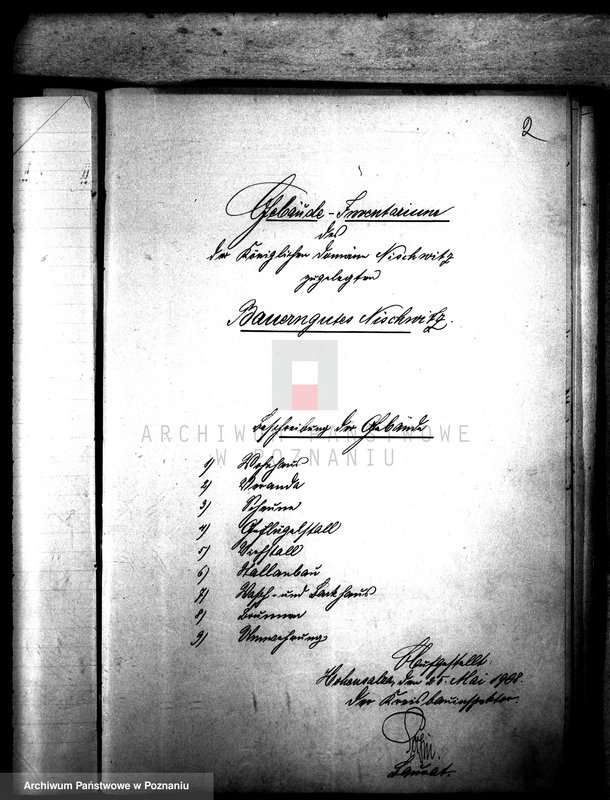 2
Gebäude-Inventarium
des
der Königlichen Domäne Nischwitz
zugelegten
Bauerngutes Nischwitz.
Beschreibung der Gebäude
ARCHIWUM PAŃSTWOWE
W POZNANIU
1) Wohnhaus
2) Veranda
3) Scheune
4) Geflügelstall
5) Viehstall
6) Stallanbau
7) Wasch- und Backhaus
8) Brunnen
9) Umwehrung
Aufgestellt:
Hohensalza, den 25. Mai 1908.
Der Kreisbauinspektor.
Baurat.
Archiwum Państwowe w Poznaniu